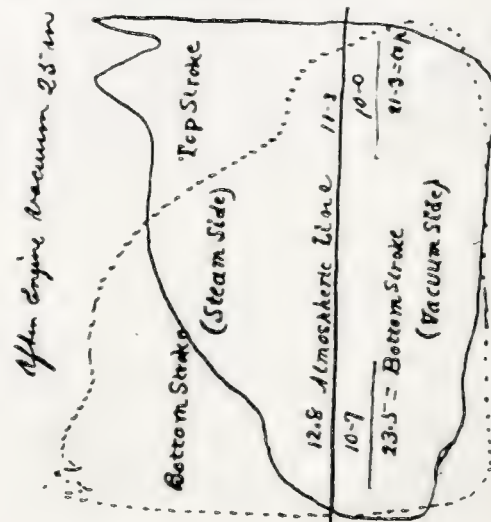 When Engine vacuum 25 in
Bottom Stroke Top Stroke
(Steam Side)
12.8 Atmospheric Line 11.3
10-7 10-0
23.5 = Bottom Stroke 21-3 = top
(Vacuum Side)